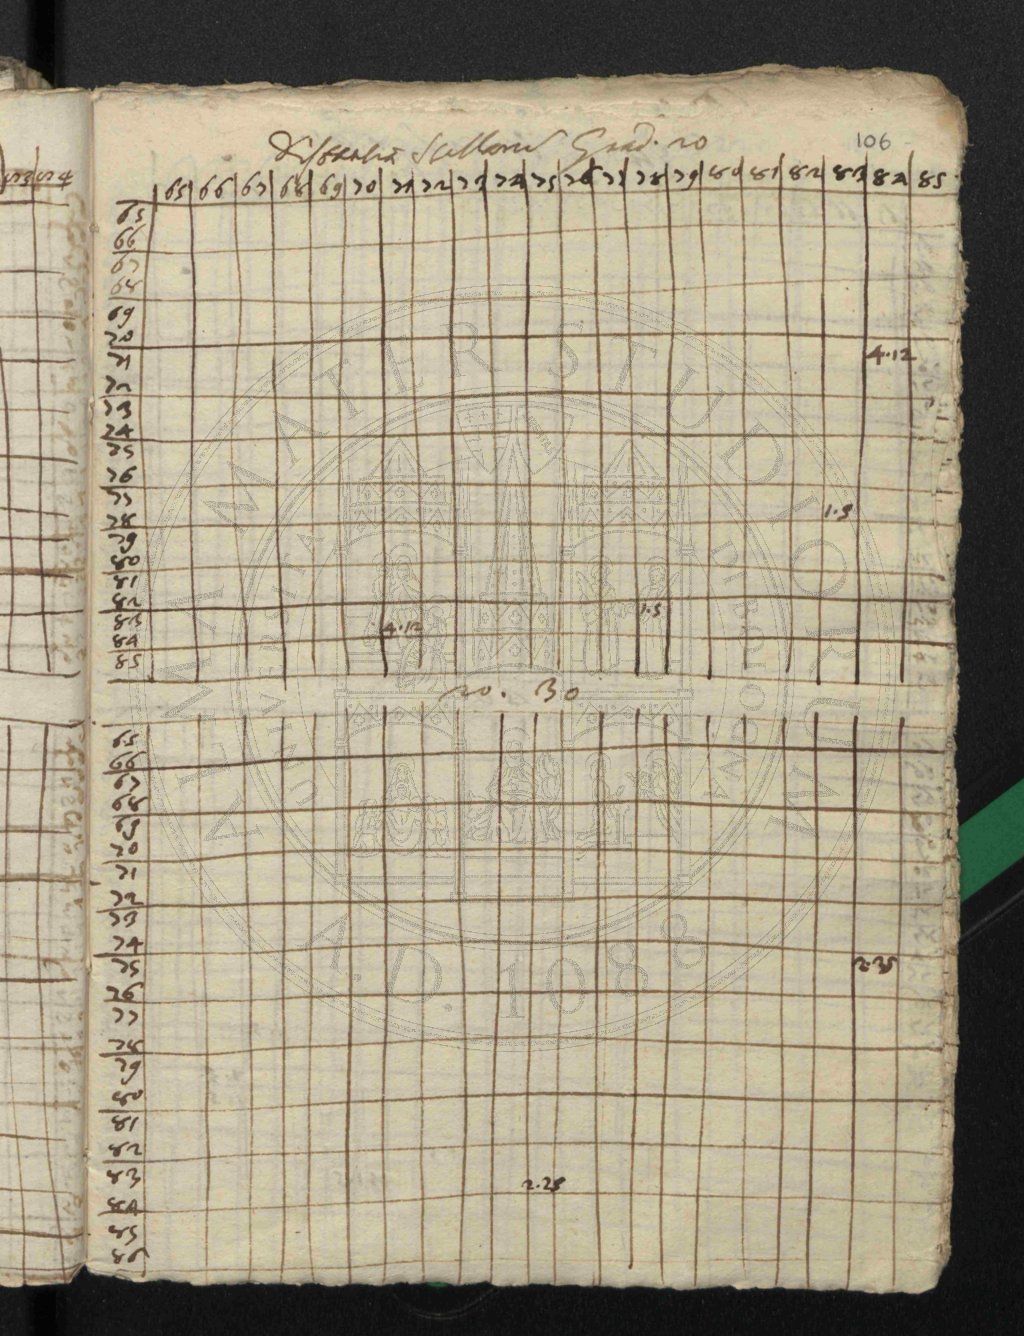 Grad. 20
106
53 54
65 66 67 68 69 70 71 72 73 74 75 76 77 78 79 80 81 82 83 84 85
65
66
67
68
69
70
71 4.12
72
73
74
75
76
77
78 1.5
79
80
81
82
83 4.12 1.5
84
85
20. 30
65
66
67
68
69
70
71
72
73
74
75 2.35
76
77
78
79
80
81
82
83
84
85
86
ALMA MATER STUDIORUM
A.D. 1088